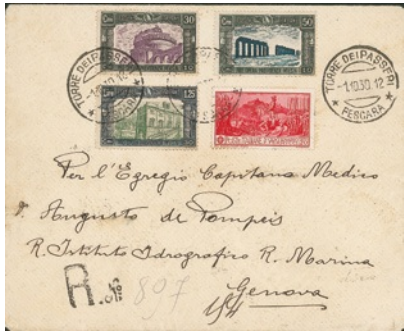 Cmi 30
Cmi 50
TORRE DEI PASSERI
-1.10.30.12
PESCARA
TORRE DEI PASSERI
-1.10.30.12
★ PESCARA ★
1,25
Per l'Egregio Capitano Medico
Augusto de Pompeis
R. Istituto Idrografico R. Marina
Genova
R.
897